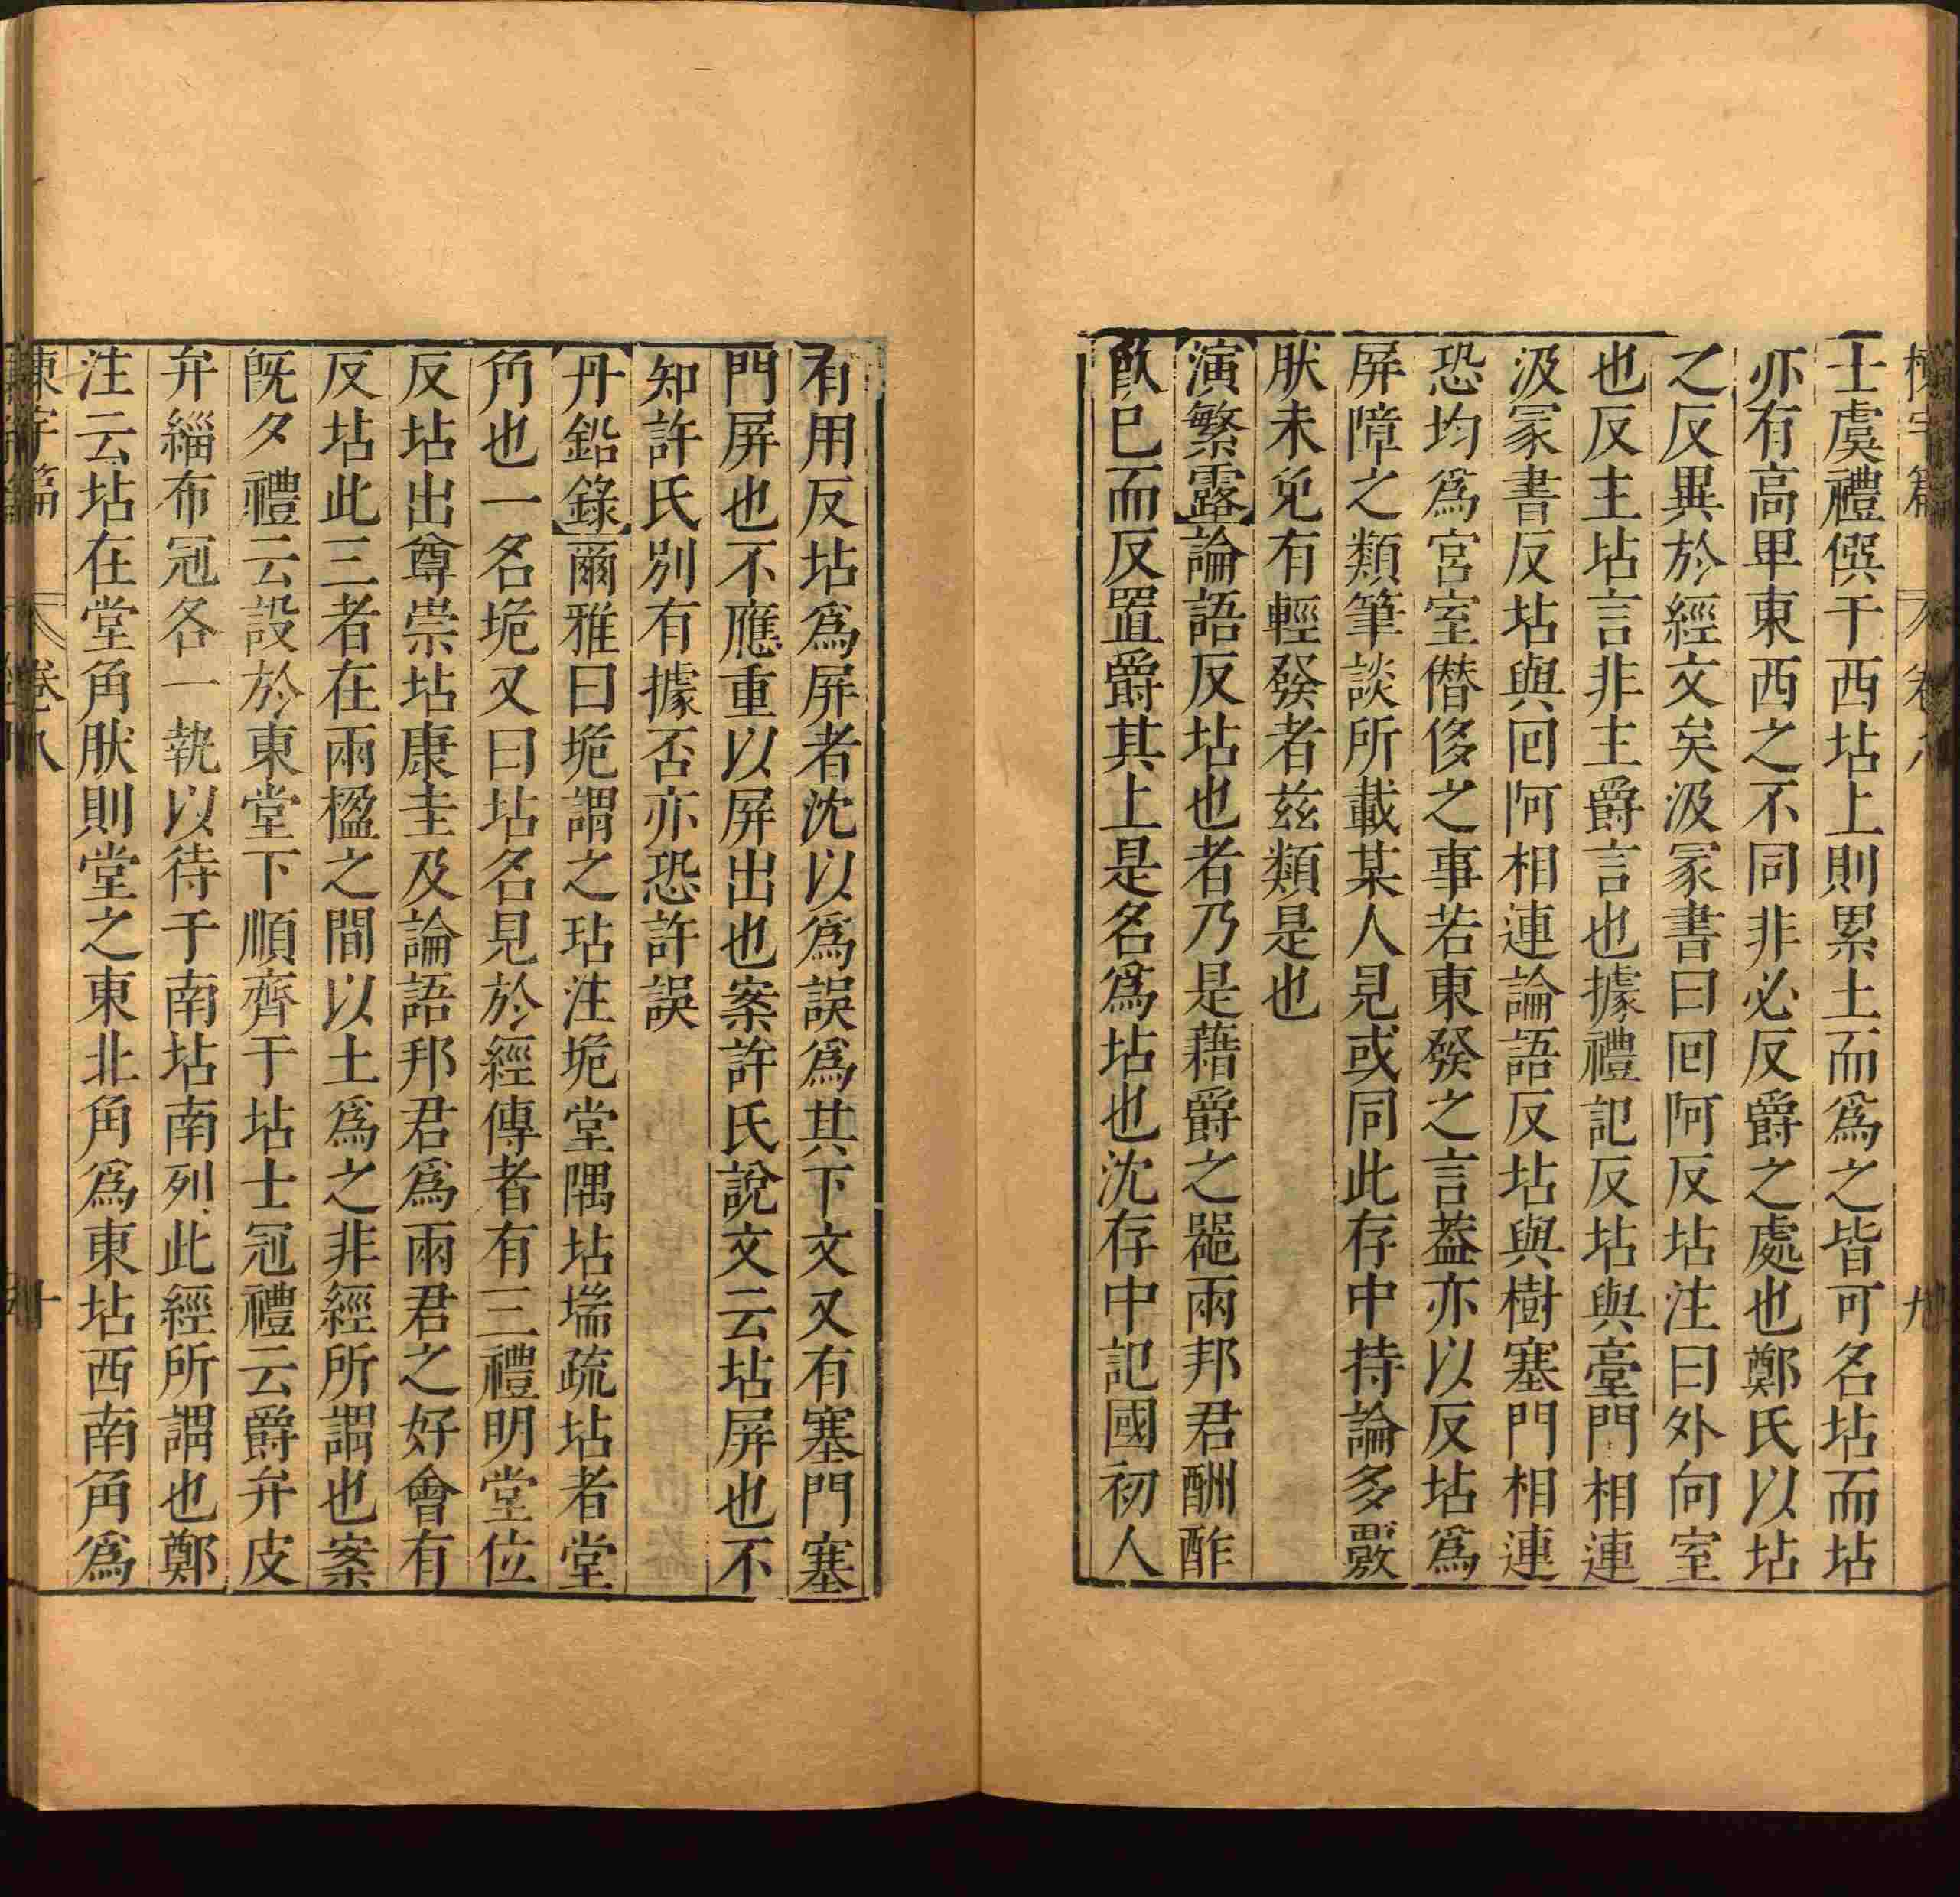 士虞禮僎于西坫上則累土而爲之皆可名坫而坫
亦有高卑東西之不同非必反爵之處也鄭氏以坫
之反異於經文矣汲冡書曰囘阿反坫注曰外向室
也反主坫言非主爵言也據禮記反坫與臺門相連
汲冡書反坫與囘阿相連論語反坫與樹塞門相連
恐均爲宮室僭侈之事若東發之言葢亦以反坫爲
屏障之類筆談所載某人見或同此存中持論多覈
肰未免有輕發者兹類是也
演繁露論語反坫也者乃是藉爵之噐兩邦君酬酢
飮巳而反置爵其上是名爲坫也沈存中記國初人
有用反坫爲屏者沈以爲誤爲其下文又有塞門塞
門屏也不應重以屏出也案許氏說文云坫屏也不
知許氏別有據否亦恐許誤
丹鉛錄爾雅曰垝謂之玷注垝堂隅坫㙐疏坫者堂
角也一名垝又曰坫名見於經傳者有三禮明堂位
反坫出尊崇坫康圭及論語邦君爲兩君之好會有
反坫此三者在兩楹之間以土爲之非經所謂也案
旣夕禮云設於東堂下順齊于坫士冠禮云爵弁皮
弁緇布冠各一執以待于南坫南列此經所謂也鄭
注云坫在堂角肰則堂之東北角爲東坫西南角爲
卷八
十